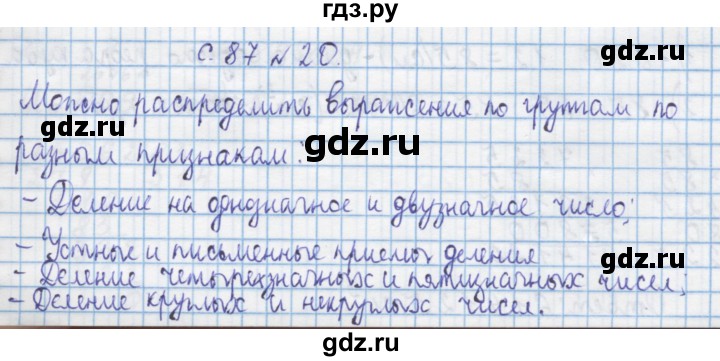 гдз.ру
с. 87 № 20.
gdz.ru
gdz.ru
Можно распределить выражения по группам по
gdz.ru
gdz.ru
gdz.ru
разным признакам:
- Деление на однозначное и двузначное число;
- Устные и письменные приемы деления
- Деление четырехзначных и пятизначных чисел;
- Деление круглых и некруглых чисел.
gdz.ru
gdz.ru
gdz.ru